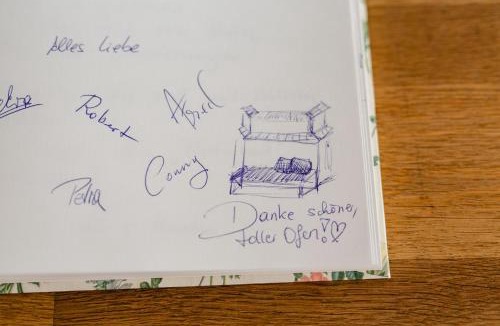 Alles Liebe
Robert
Conny
Petra
Danke schöner,
toller Ofen!